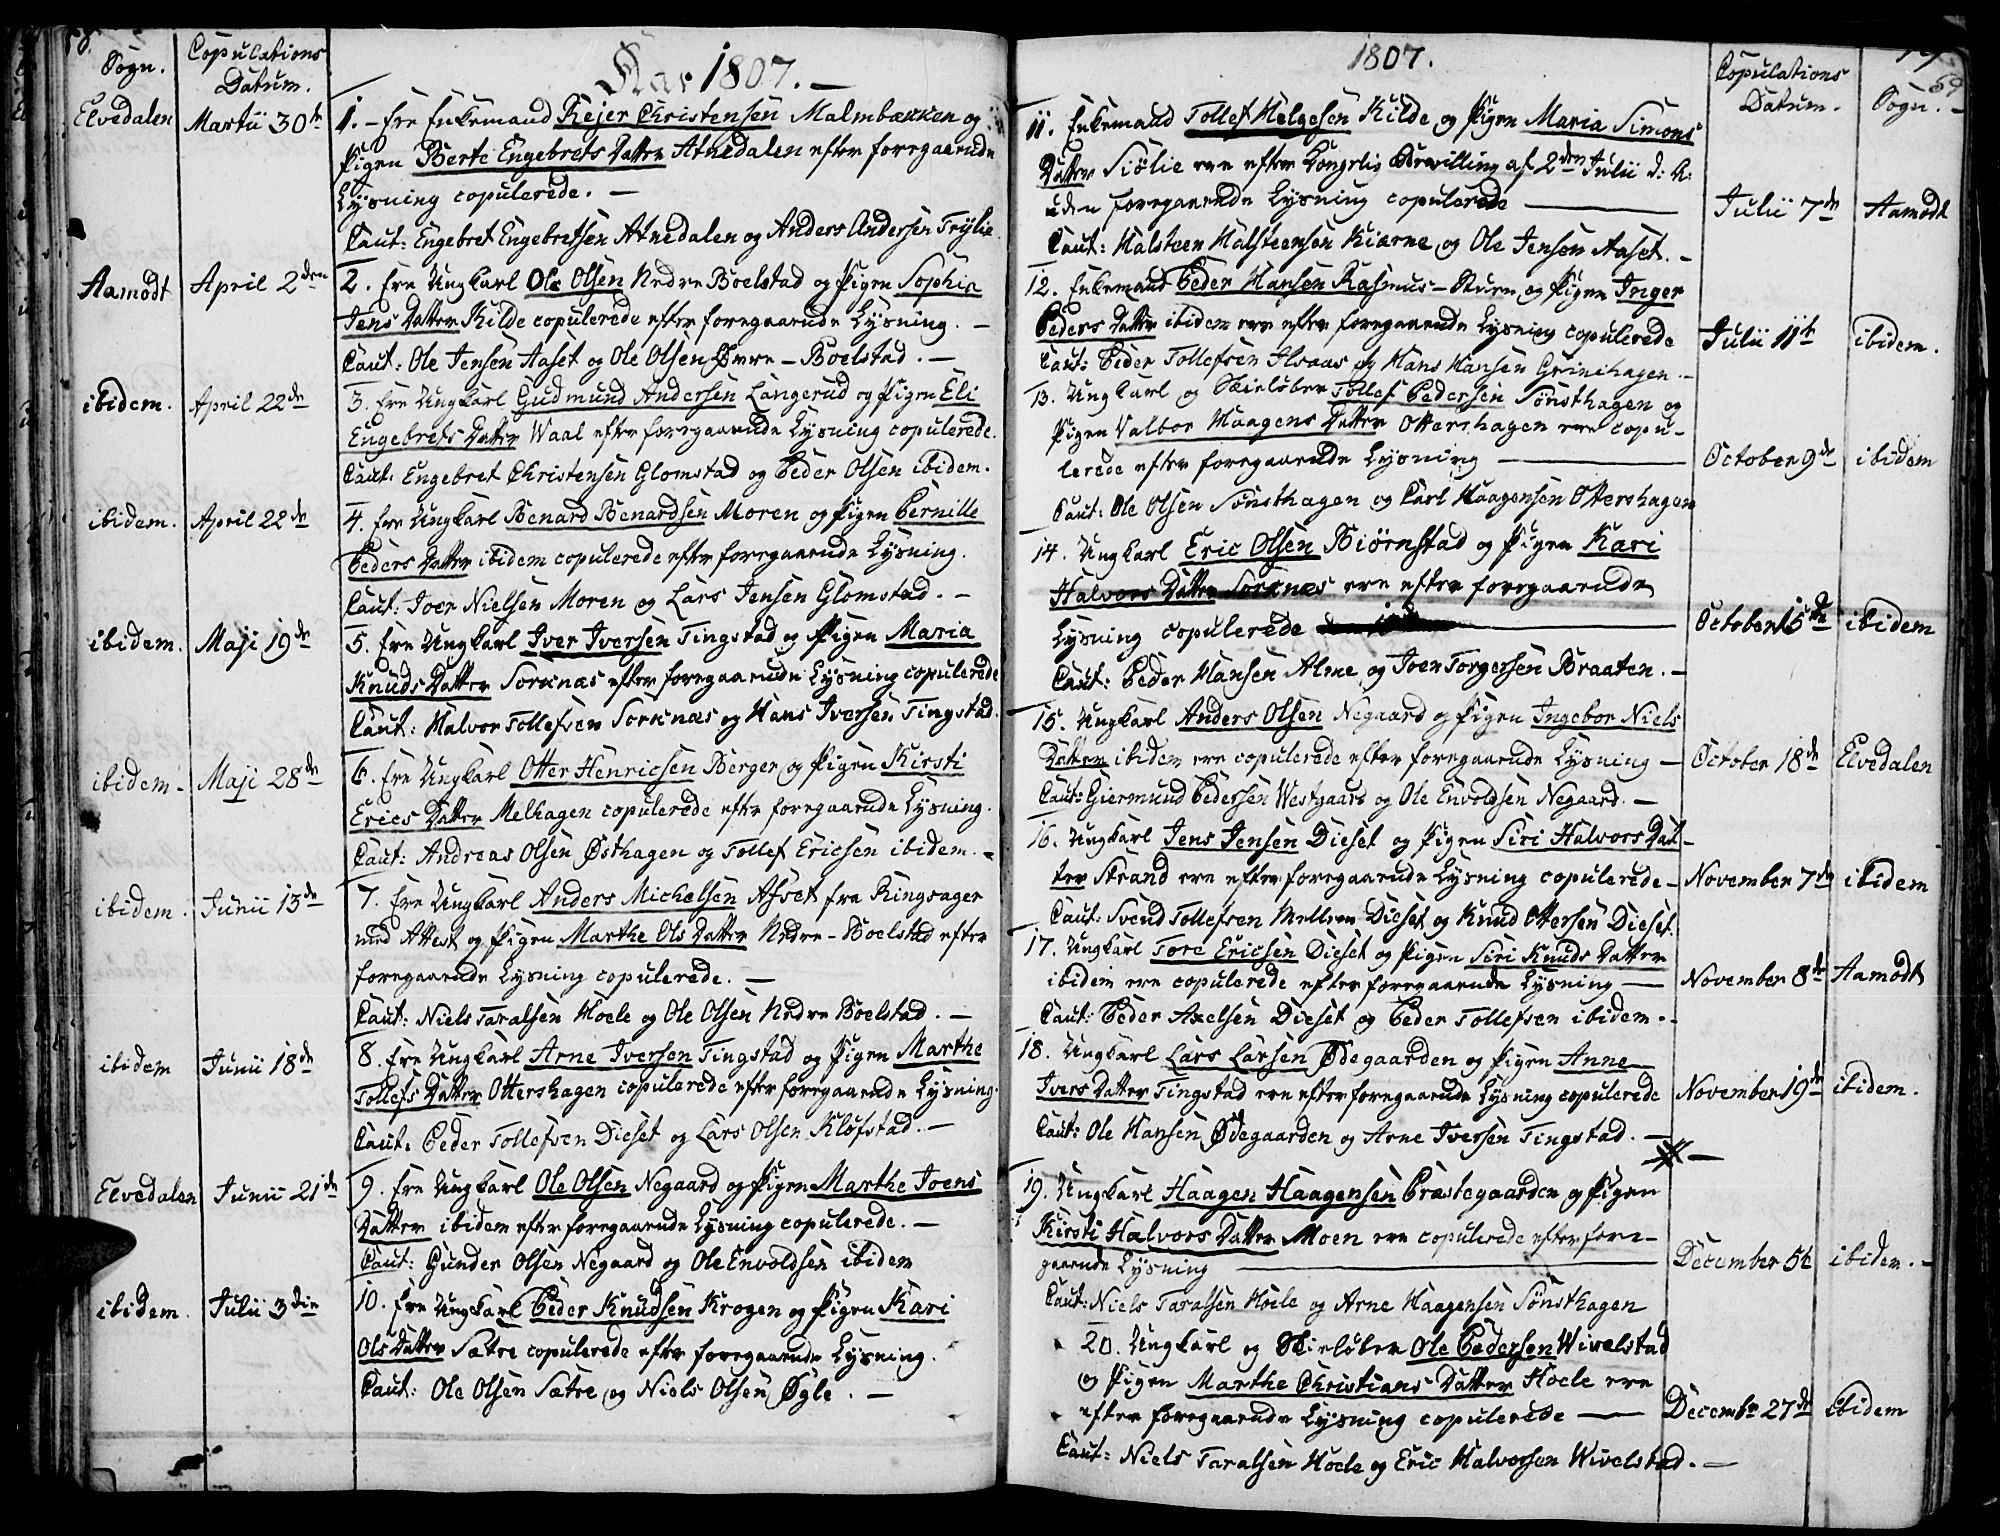 58.
Sogn.
Copulations
Datum.
Aar 1807. —
Elvedalen
Martii 30te
1. – Ere Enkemand Rejer Christensen Malmbækken og
Pigen Berte Engebrets Datter Atnedalen efter foregaaende
Lysning copulerede. —
Caut: Engebret Engebretsen Atnedalen og Anders Andersen Trÿlie.
Aamodt
April 2den
2. Ere Ung Karl Ole Olsen Nedre Boelstad og Pigen Sophia
Jens Datter Kilde copulerede efter foregaaende Lysning. —
Caut: Ole Jensen Aaset og Ole Olsen Øvre – Boelstad. —
ibidem.
April 22de
3. Ere Ung Karl Gudmund Andersen Langerud og Pigen Eli
Engebrets Datter Waal efter foregaaende Lysning copulerede.
Caut: Engebret Christensen Glomstad og Peder Olsen ibidem.
ibidem.
April 22de
4. Ere Ung Karl Benard Benardsen Moren og Pigen Pernille
Peders Datter ibidem copulerede efter foregaaende Lysning.
Caut: Joen Nielsen Moren og Lars Jensen Glomstad. —
ibidem.
Maji 19de
5. Ere Ung Karl Iver Iversen Tingstad og Pigen Maria
Knuds Datter Sorknæs efter foregaaende Lysning copulerede
Caut: Halvor Tollefsen Sorknæs og Hans Iversen Tingstad.
ibidem –
Maji 28de
6. Ere Ung Karl Otter Henricsen Berger og Pigen Kirsti
Erics Datter Melhagen copulerede efter foregaaende Lysning.
Caut: Andreas Olsen Østhagen og Tollef Ericsen ibidem. –
ibidem.
Junii 13de
7. Ere Ung Karl Anders Michelsen Afset fra Ringsager
med Attest og Pigen Marthe Ols Datter Nedre – Boelstad efter
foregaaende Lysning copulerede. —
Caut: Niels Taralsen Hoele og Ole Olsen Nedre Boelstad. —
ibidem
Junii 18de
8. Ere Ung Karl Arne Iversen Tingstad og Pigen Marthe
Tollefs Datter Ottershagen copulerede efter foregaaende Lysning.
Caut: Peder Tollefsen Dieset og Lars Olsen Kløfstad. —
Elvedalen
Junii 21de
9. Ere Ung Karl Ole Olsen Negaard og Pigen Marthe Joens
Datter ibidem efter foregaaende Lysning copulerede. —
Caut: Gunder Olsen Negaard og Ole Envoldsen ibidem
ibidem.
Julii 3die
10. Ere Ung Karl Peder Knudsen Krogen og Pigen Kari
Ols Datter Sætre copulerede efter foregaaende Lysning.
Caut: Ole Olsen Sætre og Niels Olsen Øgle. —
1807.
Copulations
Datum.
59
Sogn. –
11. Enkemand Tollef Helgesen Kilde og Pigen Maria Simons
Datter Siølie ere efter Kongelig Bevilling af 2den Julii d: A:
uden foregaaende Lysning copulerede —
Julii 7de
Aamodt
Caut: Halsteen Halsteensen Kiærne og Ole Jensen Aaset. –
12. Enkemand Peder Hansen Rasmus – Stuen og Pigen Inger
Peders Datter ibidem ere efter foregaaende Lysning copulerede
Julii 11te
ibidem.
Caut: Peder Tollefsen Ilsaas og Hans Hansen Grinihagen. –
13. Ung Karl og Skieløber Tollef Pedersen Sønsthagen og
Pigen Valbor Haagens Datter Ottershagen ere copu-
lerede efter foregaaende Lysning —
October 9de
ibidem
Caut: Ole Olsen Sønsthagen og Carl Haagensen Ottershagen
14. Ung Karl Eric Olsen Biørnstad og Pigen Kari
Halvors Datter Sorknæs ere efter foregaaende
Lysning copulerede —
October 15de
ibidem
Caut: Peder Hansen Alme og Joen Torgersen Braaten. –
15. Ung Karl Anders Olsen Negaard og Pigen Ingebor Niels
Datter ibidem ere copulerede efter foregaaende Lysning —
October 18de
Elvedalen
Caut: Giermund Pedersen Westgaard og Ole Envoldsen Negaard. —
16. Ung Karl Jens Jensen Dieset og Pigen Siri Halvors Dat-
ter Strand ere efter foregaaende Lysning copulerede –
November 7de
ibidem
Caut: Svend Tollefsen Mellem Dieset og Knud Ottersen Dieset.
17. Ung Karl Tore Ericsen Dieset og Pigen Siri Knuds Datter
ibidem ere copulerede efter foregaaende Lysning —
November 8de
Aamodt
Caut: Peder Axelsen Dieset og Peder Tollefsen ibidem. –
18. Ung Karl Lars Larsen Ødegaarden og Pigen Anne
Ivers Datter Tingstad ere efter foregaaende Lysning copulerede
November 19de
ibidem.
Caut: Ole Hansen Ødegaarden og Arne Iversen Tingstad. —
19. Ung Karl Haagen Haagensen Præstegaarden og Pigen
Kirsti Halvors Datter Moen ere copulerede efter fore-
gaaende Lysning —
December 5te
ibidem. –
Caut: Niels Taralsen Hoele og Arne Haagensen Sønsthagen
20. Ung Karl og Skieløber Ole Pedersen Wivelstad
og Pigen Marthe Christians Datter Hoele ere
efter foregaaende Lysning copulerede —
Decembr 27de
ibidem
Caut: Niels Taralsen Hoele og Eric Halvorsen Wivelstad. —